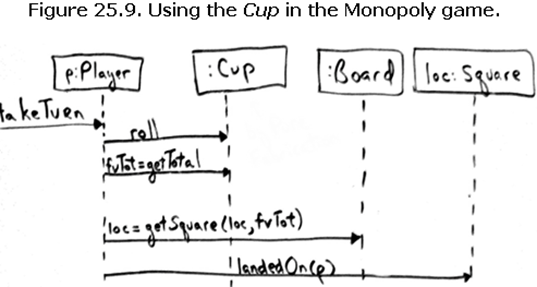 Figure 25.9. Using the Cup in the Monopoly game.
p:Player
:Cup
:Board
loc:Square
takeTurn
roll
fvTot=getTotal
loc=getSquare(loc,fvTot)
landedOn(p)